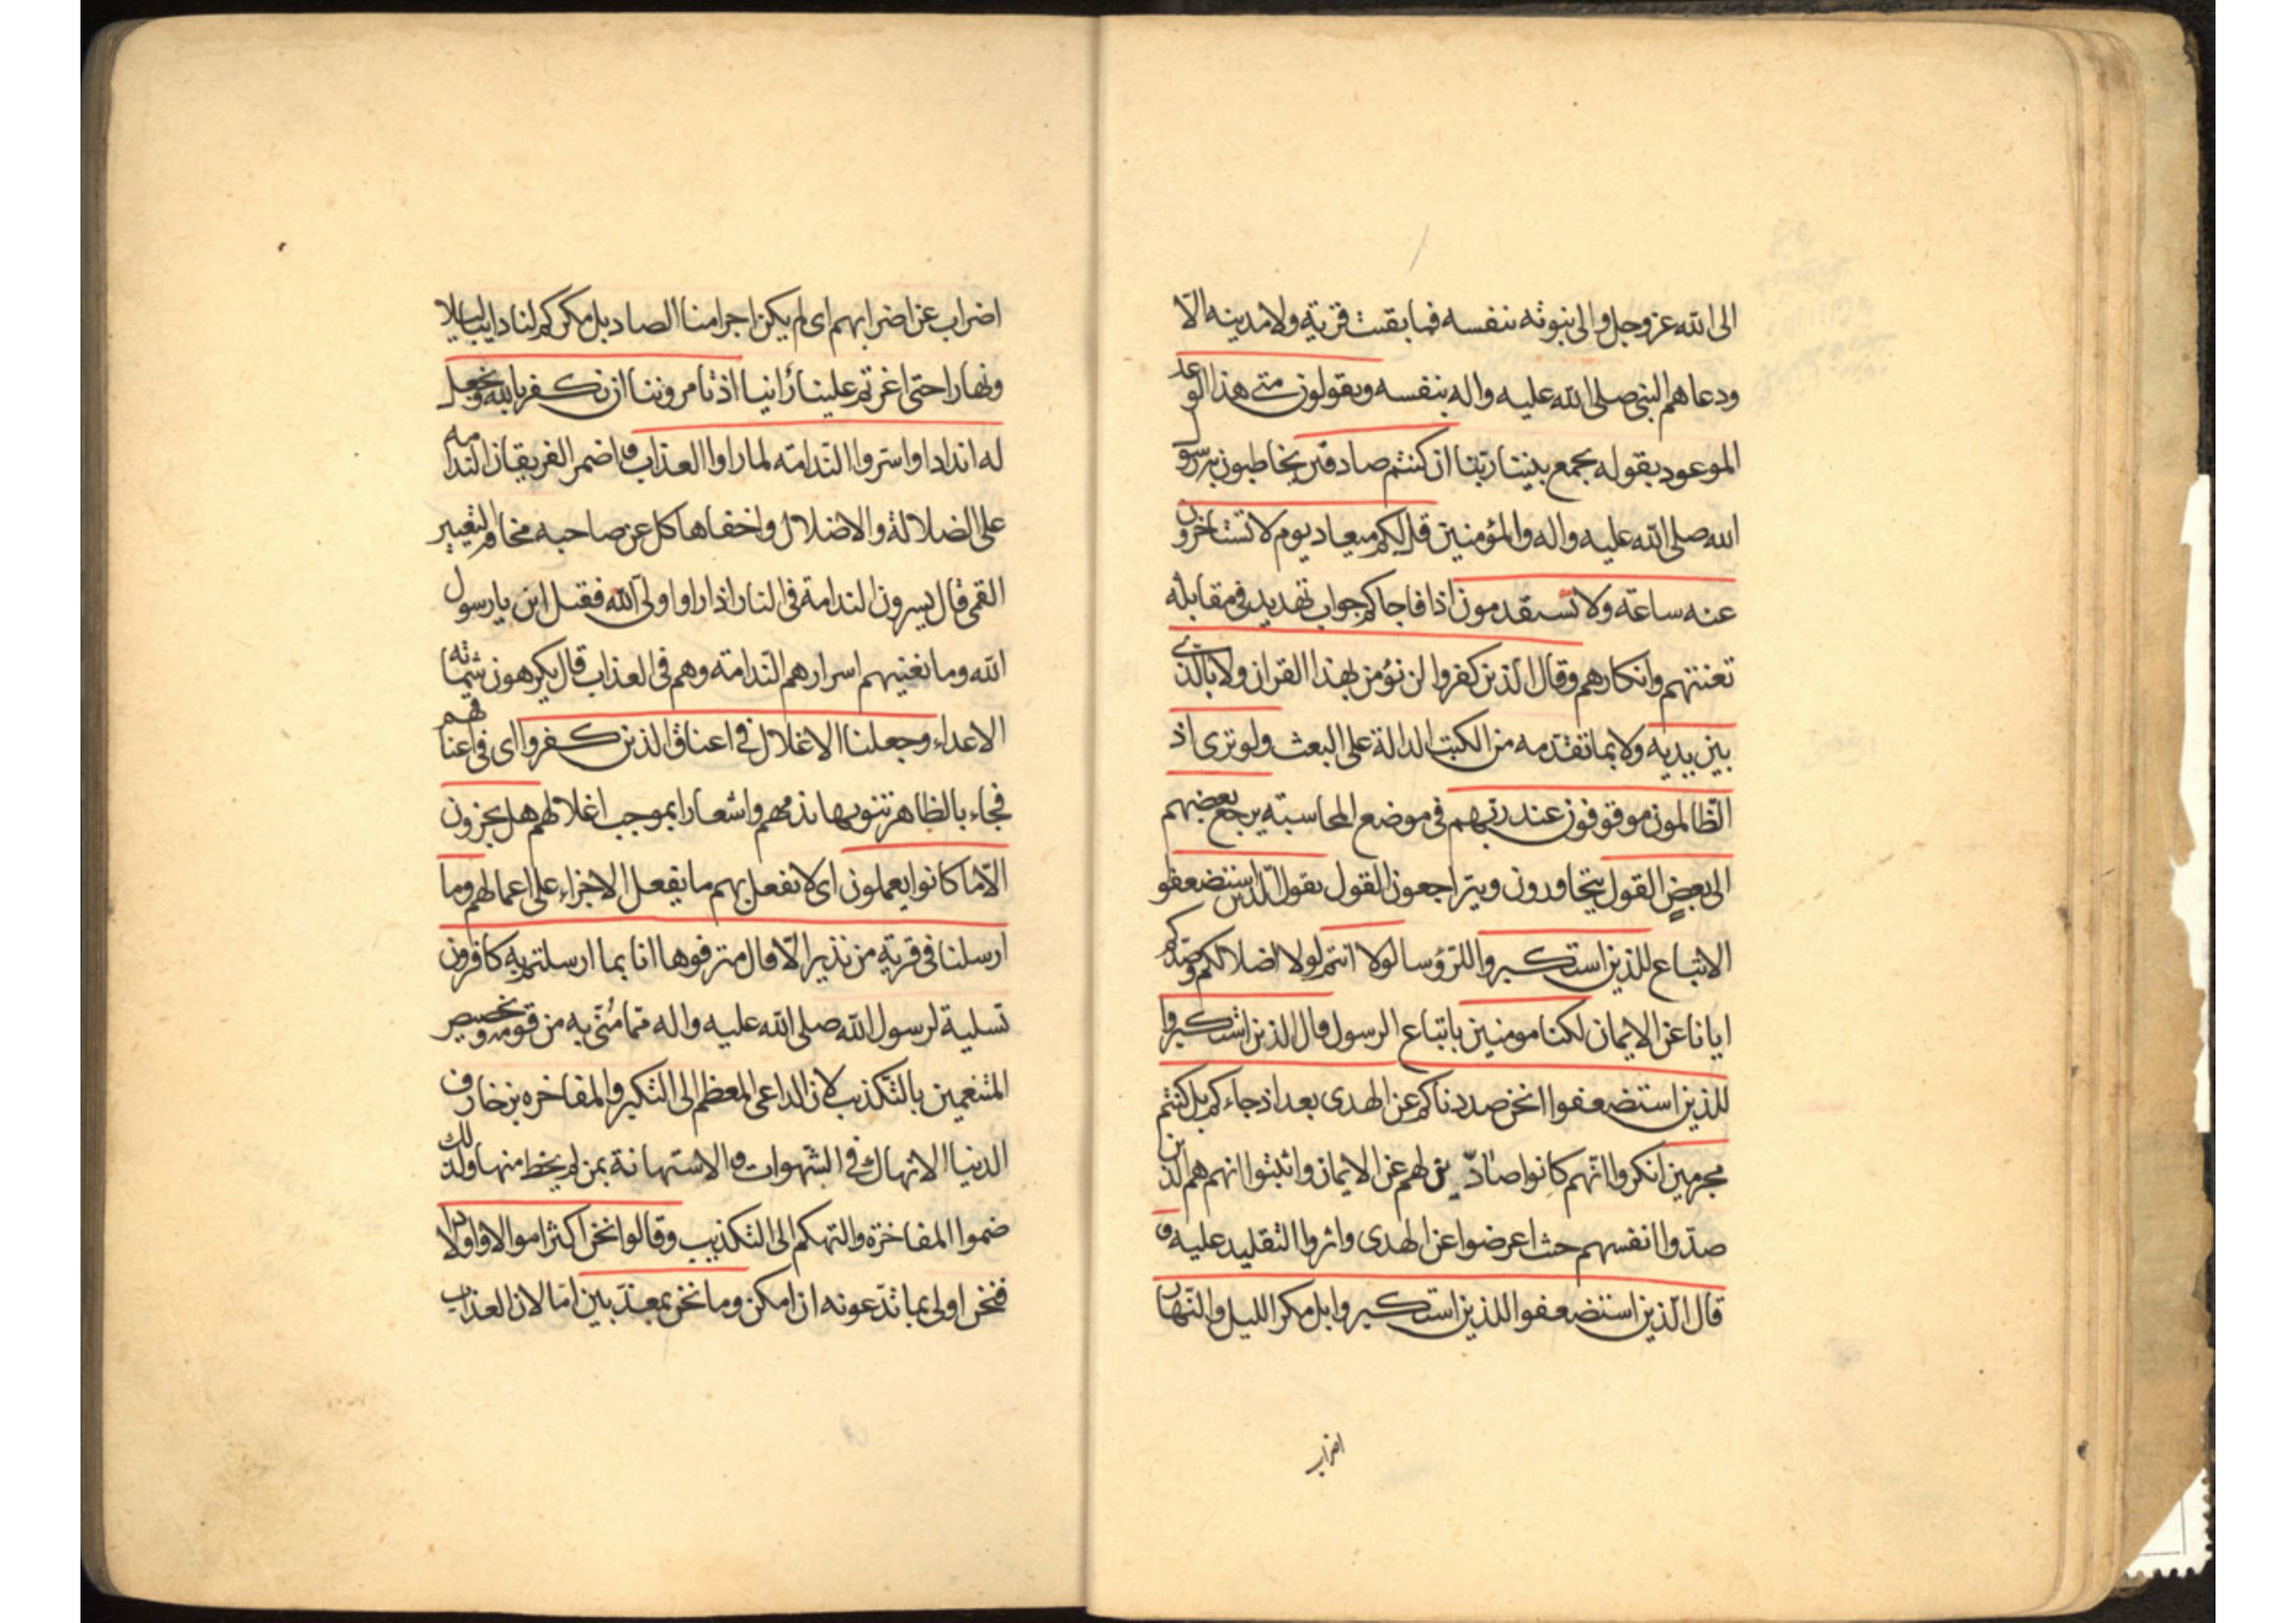 الى الله عز وجل والى نبوته بنفسه فما بقيت قرية ولا مدينه الّا
ودعاهم النبى صلى الله عليه واله بنفسه ويقولون متى هذا الوعد
الموعود بقوله يجمع بيننا ربّنا ان كنتم صادقين يخاطبون به رسول
الله صلى الله عليه واله والمؤمنين قل لكم ميعاد يوم لا تستاخرون
عنه ساعة ولا تستقدمون اذا فاجاكم جواب تهديد فى مقابله
تعنتهم وانكارهم وقال الّذين كفروا لن نؤمن بهذا القران ولا بالّذى
بين يديه ولا بما تقدّمه من الكتب الدالة على البعث ولو ترى اذ
الظّالمون موقوفون عند ربّهم فى موضع المحاسبة يرجع بعضهم
الى بعضٍ القول يتحاورون ويتراجعون القول يقول الّذين استضعفوا
الاتباع للذين استكبروا للرّؤسا لولا انتم لولا اضلالكم وصدّكم
ايانا عن الايمان لكنا مومنين باتباع الرسول قال الذين استكبروا
للذين استضعفوا انحن صددناكم عن الهدى بعد اذ جاءكم بل كنتم
مجرمين انكروا انّهم كانوا صادّين لهم عن الايمان واثبتوا انهم هم الذين
صدّوا انفسهم حيث اعرضوا عن الهدى واثروا التقليد عليه و
قال الّذين استضعفوا للذين استكبروا بل مكر الليل والنّهار
اضراب
اضراب عن اضرابهم اى لم يكن اجرامنا الصاد بل مكركم لنا دايبا ليلا
ونهارا حتى اغرتم علينا رأينا اذ تامروننا ان نكفر بالله ونجعل
له اندادا واسروا النّدامة لما راوا العذاب واضمر الفريقان الندامه
على الضلالة والاضلال واخفاها كل عن صاحبه مخافة التعيير
القمى قال يسرون الندامة فى النار اذا راوا ولى الله فقيل يا بن رسول
الله وما يغنيهم اسرارهم النّدامة وهم فى العذاب قال يكرهون شماتة
الاعداء وجعلنا الاغلال فى اعناق الذين كفروا اى فى اعناقهم
فجاء بالظاهر تنويها بذمهم واشعارا بموجب اغلالهم هل يجزون
الّا ما كانوا يعملون اى لا يفعل بهم ما يفعل الا جزاء على اعمالهم وما
ارسلنا فى قرية من نذير الّا قال مترفوها انا بما ارسلتم به كافرون
تسلية لرسول الله صلى الله عليه واله ممّا مُنّى به من قومه وتخصيص
المتنعمين بالتّكذيب لان الداعى المعظم الى التّكبر والمفاخره بزخارف
الدنيا الانهماك فى الشّهوات والاستهانة بمن لم يحظ منها ولذلك
ضموا المفاخرة والتهكم الى التكذيب وقالوا نحن اكثر اموالا واولادا
فنحن اولى بما تدّعونه ان امكن وما نحن بمعذّبين امّا لان العذاب